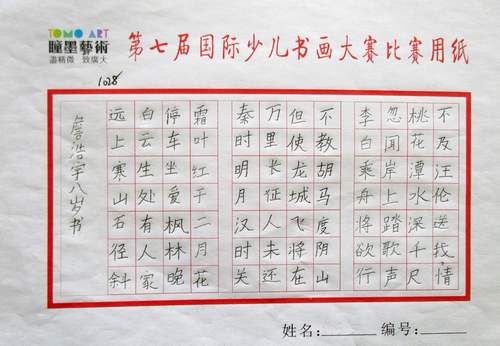 TOMO ART
瞳墨藝術
盡精微 致廣大
第七届国际少儿书画大赛比赛用纸
1028
远上寒山石径斜
白云生处有人家
停车坐爱枫林晚
霜叶红于二月花
秦时明月汉时关
万里长征人未还
但使龙城飞将在
不教胡马度阴山
李白乘舟将欲行
忽闻岸上踏歌声
桃花潭水深千尺
不及汪伦送我情
詹浩宇八岁书
姓名:
编号: